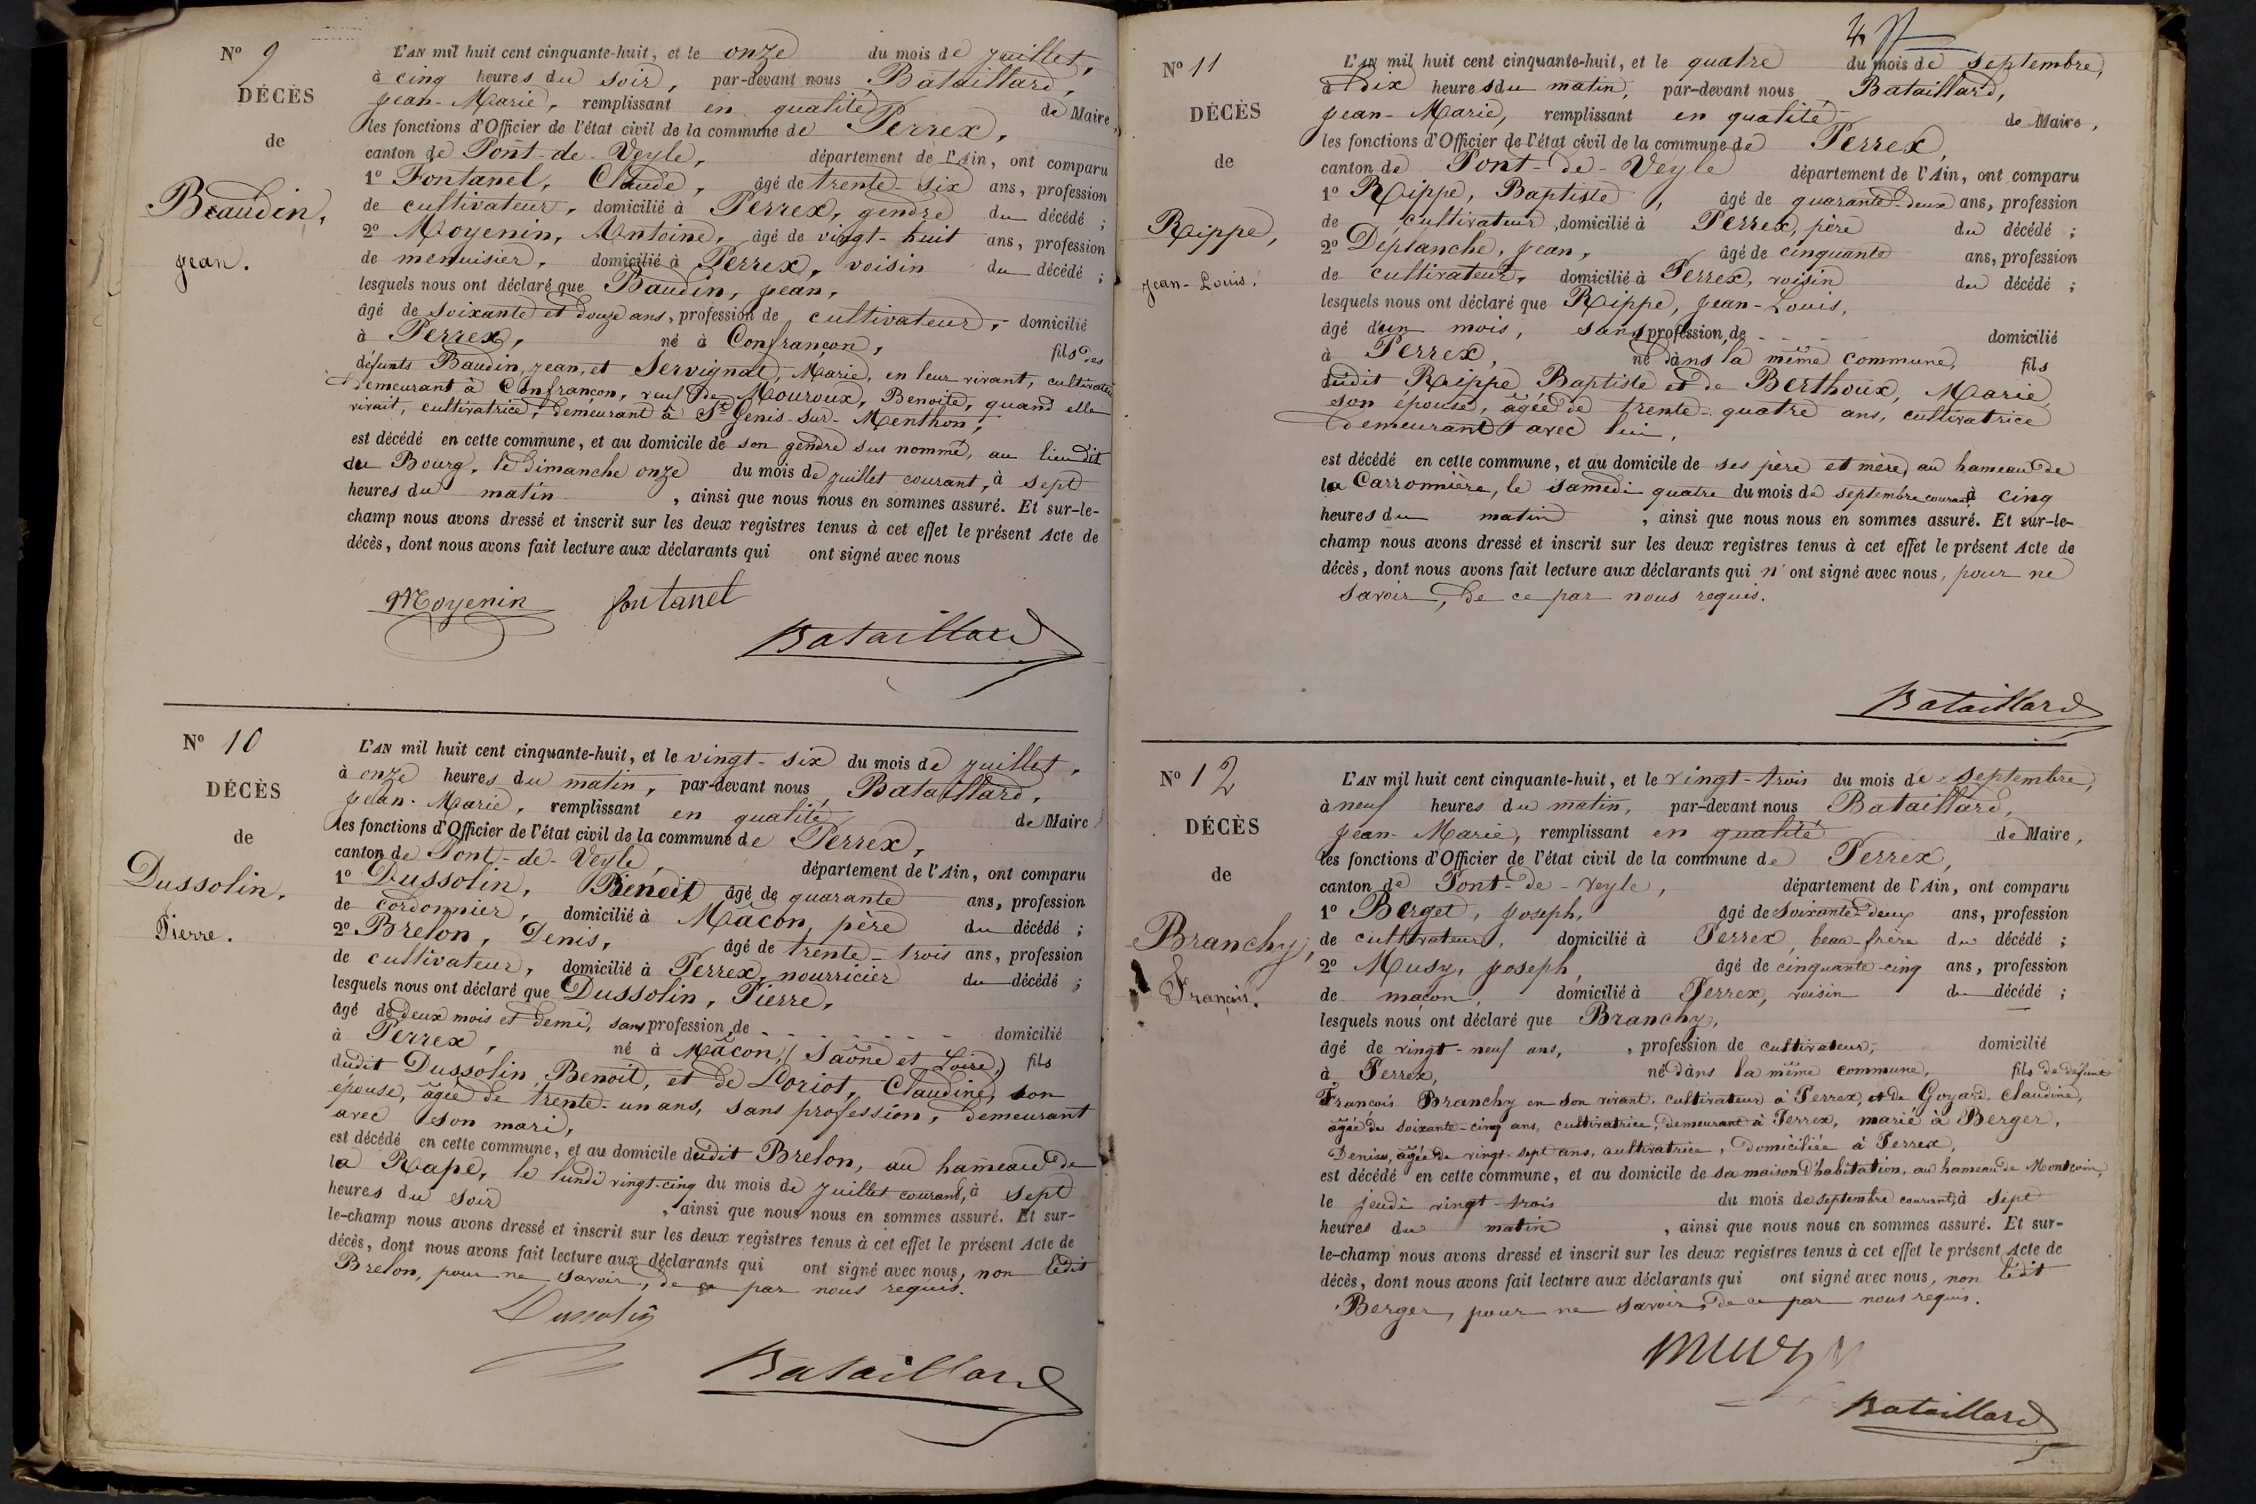 Nº 9
DÉCÈS
de
Beaudin,
Jean.
L'AN mil huit cent cinquante-huit, et le onze du mois de juillet,
à cinq heures du soir, par-devant nous Bataillard,
Jean-Marie, remplissant en qualité de Maire,
les fonctions d'Officier de l'état civil de la commune de Perrex,
canton de Pont-de-Veyle, département de l'Ain, ont comparu
1º Fontanel, Claude, âgé de trente-six ans, profession
de cultivateur, domicilié à Perrex, gendre du décédé ;
2º Moyenin, Antoine, âgé de vingt-huit ans, profession
de menuisier, domicilié à Perrex, voisin du décédé ;
lesquels nous ont déclaré que Baudin, Jean,
âgé de soixante et douze ans, profession de cultivateur, domicilié
à Perrex, né à Confrançon, fils des
défunts Baudin, Jean, et Servignat, Marie, en leur vivant, cultivateurs
demeurant à Confrançon, veuf de Mouroux, Benoite, quand elle
vivait, cultivatrice, demeurant à St Genis-sur-Menthon,
est décédé en cette commune, et au domicile de son gendre sus nommé, au lieu dit
du Bourg, le dimanche onze du mois de juillet courant, à sept
heures du matin, ainsi que nous nous en sommes assuré. Et sur-le-
champ nous avons dressé et inscrit sur les deux registres tenus à cet effet le présent Acte de
décès, dont nous avons fait lecture aux déclarants qui ont signé avec nous
Moyenin fontanel
Bataillard
Nº 10
DÉCÈS
de
Dussolin,
Pierre.
L'AN mil huit cent cinquante-huit, et le vingt-six du mois de juillet,
à onze heures du matin, par-devant nous Bataillard,
Jean-Marie, remplissant en qualité de Maire
les fonctions d'Officier de l'état civil de la commune de Perrex,
canton de Pont-de-Veyle, département de l'Ain, ont comparu
1º Dussolin, Benoit âgé de quarante ans, profession
de cordonnier, domicilié à Mâcon, père du décédé ;
2º Brelon, Denis, âgé de trente-trois ans, profession
de cultivateur, domicilié à Perrex, nourricier du décédé ;
lesquels nous ont déclaré que Dussolin, Pierre,
âgé de deux mois et demi, sans profession de - - - - - - domicilié
à Perrex, né à Mâcon, (Saône et Loire) fils
dudit Dussolin, Benoit, et de Loriot, Claudine, son
épouse, âgée de trente-un ans, sans profession, demeurant
avec son mari,
est décédé en cette commune, et au domicile dudit Brelon, au hameau de
la Rape, le lundi vingt-cinq du mois de juillet courant, à sept
heures du soir, ainsi que nous nous en sommes assuré. Et sur-
le-champ nous avons dressé et inscrit sur les deux registres tenus à cet effet le présent Acte de
décès, dont nous avons fait lecture aux déclarants qui ont signé avec nous, non ledit
Brelon, pour ne savoir, de ce par nous requis.
Dussolin
Bataillard
Nº 11
DÉCÈS
de
Rippe,
Jean-Louis.
L'AN mil huit cent cinquante-huit, et le quatre du mois de septembre,
à dix heures du matin, par-devant nous Bataillard,
Jean-Marie, remplissant en qualité de Maire,
les fonctions d'Officier de l'état civil de la commune de Perrex,
canton de Pont-de-Veyle département de l'Ain, ont comparu
1º Rippe, Baptiste, âgé de quarante-deux ans, profession
de cultivateur, domicilié à Perrex, père du décédé ;
2º Deplanche, Jean, âgé de cinquante ans, profession
de cultivateur, domicilié à Perrex, voisin du décédé ;
lesquels nous ont déclaré que Rippe, Jean-Louis,
âgé d'un mois, sans profession de - - - - domicilié
à Perrex, né dans la même commune, fils
dudit Rippe Baptiste et de Berthoux, Marie,
son épouse, âgée de trente-quatre ans, cultivatrice
demeurant avec lui,
est décédé en cette commune, et au domicile de ses père et mère, au hameau de
la Carronnière, le samedi quatre du mois de septembre courant à cinq
heures du matin, ainsi que nous nous en sommes assuré. Et sur-le-
champ nous avons dressé et inscrit sur les deux registres tenus à cet effet le présent Acte de
décès, dont nous avons fait lecture aux déclarants qui n'ont signé avec nous, pour ne
savoir, de ce par nous requis.
Bataillard
Nº 12
DÉCÈS
de
Branchy,
François.
L'AN mil huit cent cinquante-huit, et le vingt-trois du mois de septembre,
à neuf heures du matin, par-devant nous Bataillard,
Jean-Marie, remplissant en qualité de Maire,
les fonctions d'Officier de l'état civil de la commune de Perrex,
canton de Pont-de-Veyle, département de l'Ain, ont comparu
1º Berget, Joseph, âgé de soixante-deux ans, profession
de cultivateur, domicilié à Perrex, beau-frère du décédé ;
2º Musy, Joseph, âgé de cinquante-cinq ans, profession
de maçon, domicilié à Perrex, voisin du décédé ;
lesquels nous ont déclaré que Branchy,
âgé de vingt-neuf ans, profession de cultivateur, domicilié
à Perrex, né dans la même commune, fils de défunt
François Branchy en son vivant cultivateur à Perrex, et de Goyard Claudine,
âgée de soixante-cinq ans, cultivatrice, demeurant à Perrex, marié à Berger,
Denise, âgée de vingt-sept ans, cultivatrice, domiciliée à Perrex,
est décédé en cette commune, et au domicile de sa maison d'habitation, au hameau de Montcoin,
le jeudi vingt-trois du mois de septembre courant, à sept
heures du matin, ainsi que nous nous en sommes assuré. Et sur-
le-champ nous avons dressé et inscrit sur les deux registres tenus à cet effet le présent Acte de
décès, dont nous avons fait lecture aux déclarants qui ont signé avec nous, non ledit
Berger, pour ne savoir, de ce par nous requis.
Musy
Bataillard